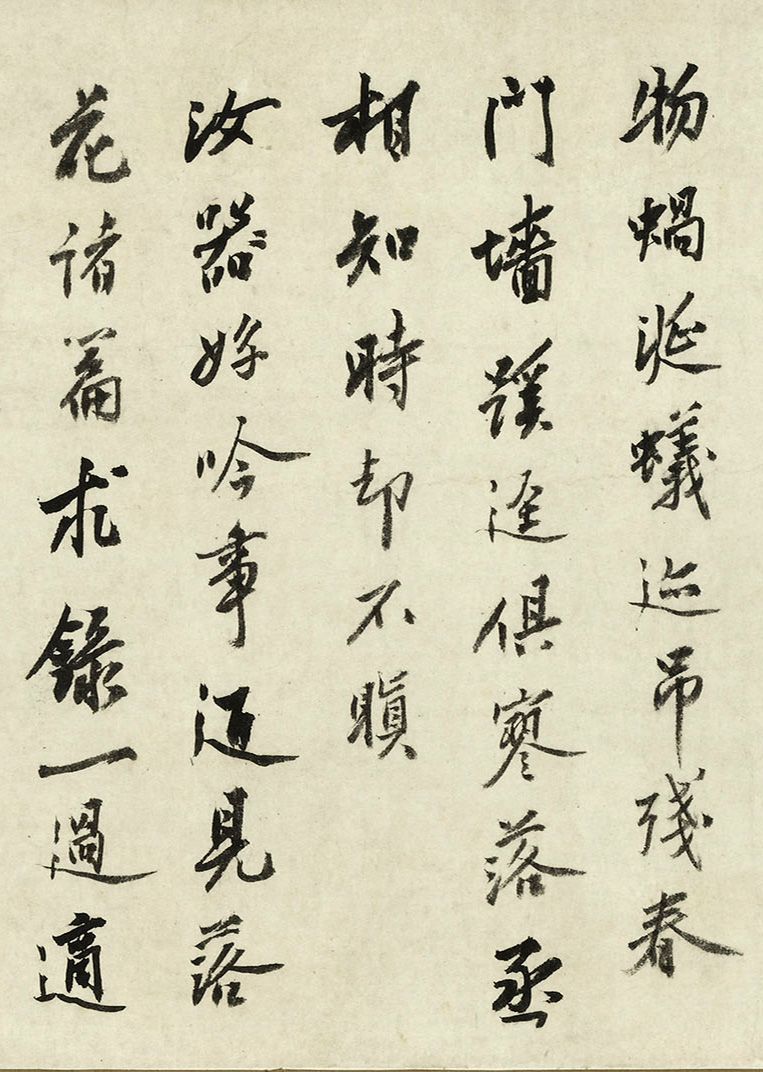 物蝸涎蟻迹吊殘春
門墻蹊逕俱寥落丞
相知時却不瞋
汝器好吟事適見落
花諸篇求錄一過適